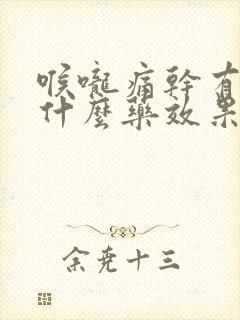 喉嚨痛幹有
什麼藥效果
余堯十三